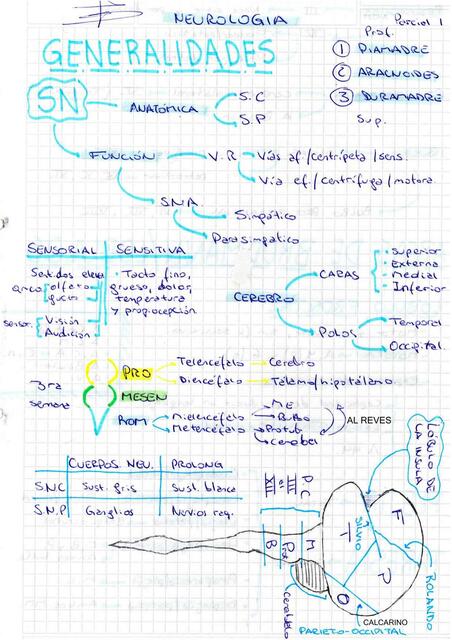 NEUROLOGIA
Parcial 1
GENERALIDADES
Prof.
1 PIAMADRE
2 ARACNOIDES
3 DURAMADRE
Sup.
SN
ANATÓMICA
S.C
S.P
FUNCIÓN
V.R
Vías af./centrípeta/sens.
Vía ef./centrífuga/motora.
SNA.
Simpático
Parasimpático
SENSORIAL
SENSITIVA
olfato
gusto
Visión
Audición
Tacto fino,
grueso, dolor,
temperatura
y propiocepción
CEREBRO
CARAS
Superior
Externa
Medial
Inferior
POLOS
Temporal
Occipital.
3ra
semana
PRO
MESEN
ROM
Telencéfalo
Cerebro
Diencéfalo
Tálamo/hipotálamo
Mielencéfalo
Metencéfalo
ME
Bulbo
Protub
Cerebel
AL REVES
CUERPOS NEU.
PROLONG
S.N.C
Sust. gris
Sust. blanca
S.N.P
Ganglios
Nervios raq.
P.C
III
a
XII
M
Prot
B
Cerebelo
LÓBULO DE
LA INSULA
F
T
P
O
SILVIO
ROLANDO
CALCARINO
PARIETO-OCCIPITAL